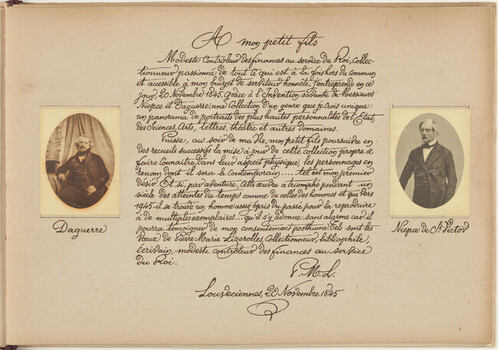 A mon petit fils
Modeste Contrôleur des finances au service du Roi, collec-
tionneur passionné de tout ce qui est à la fois hors du commun
et accessible à mon budget de serviteur honnête, j'entreprends en ce
jour, 20 Novembre 1845, grâce à l'Invention savante de Messieurs
Niepce et Daguerre, une Collection d'un genre que je crois unique:
un panorama de portraits des plus hautes personnalités de l'Etat
des Sciences, Arts, lettres, théâtre et autres domaines.
Puisse, au soir de ma Vie, mon petit fils poursuivre en
des recueils successifs la mise à jour de cette collection propre à
faire connaître dans leur aspect physique, les personnages en
renom dont il sera le Contemporain.... tel est mon premier
désir. Et si, par aventure, cette œuvre a triomphé pendant un
siècle des atteintes du temps comme de celles des hommes et que vers
1945 il se trouve un homme assez épris du passé pour la reproduire
à de multiples exemplaires.. qu'il s'y adonne sans alarme car il
pourra témoigner de mon consentement posthume. Tels sont les
vœux de Pierre Marie Lizerolles, Collectionneur, bibliophile,
écrivain, modeste contrôleur des finances au service
du Roi.
P. M. L.
Louveciennes, 20 Novembre 1845
Daguerre
Niepce de St Victor